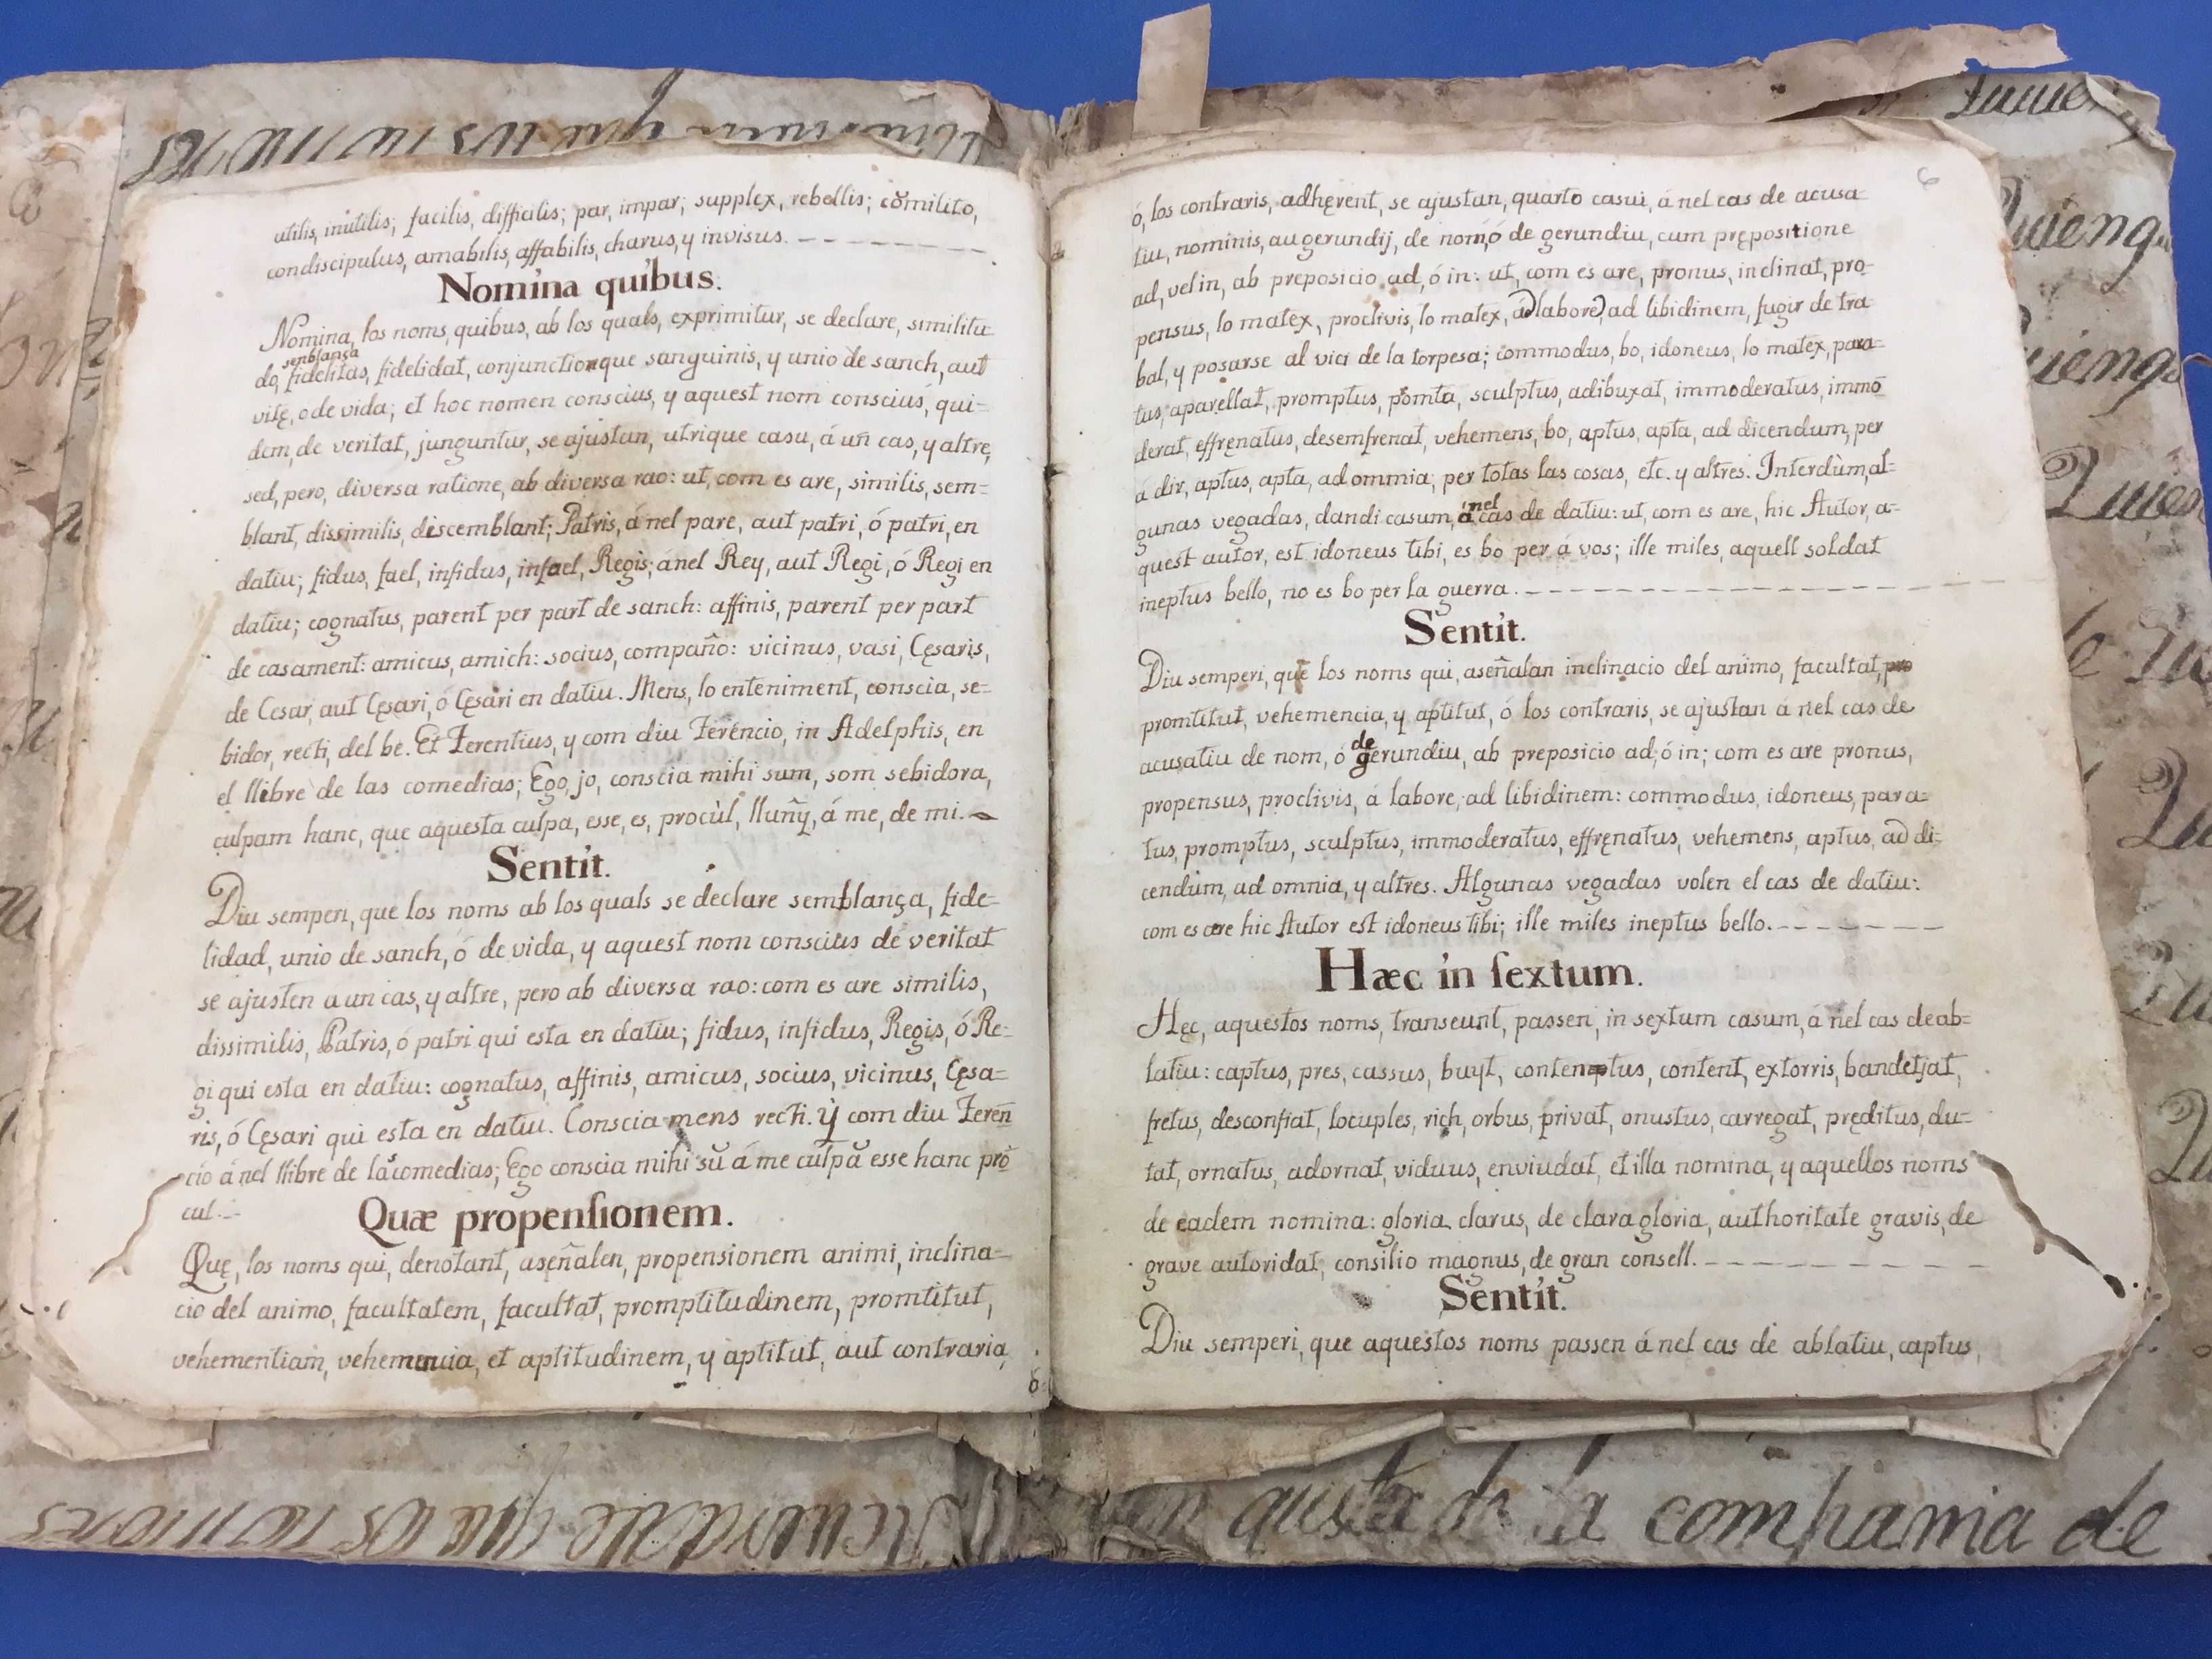 utilis, inutilis; facilis, difficilis; par, impar; supplex, rebellis; cõmilito,
condiscipulus, amabilis, affabilis, charus, y invisus.
Nomina quibus.
Nomina, los noms, quibus, ab los quals, exprimitur, se declare, similitu-
senblança
do, fidelitas, fidelidat, conjunctionque sanguinis, y unio de sanch, aut
vitę, o de vida; et hoc nomen conscius, y aquest nom conscius, qui-
dem, de veritat, junguntur, se ajustan, utrique casu, á un cas, y altre,
sed, pero, diversa ratione, ab diversa rao: ut, com es are, similis, sem-
blant, dissimilis, discemblant; Patris, á nel pare, aut patri, ó patri, en
datiu; fidus, fael, infidus, infael, Regis; ánel Rey, aut Regi, ó Regi en
datiu; cognatus, parent per part de sanch: affinis, parent per part
de casament: amicus, amich: socius, compaño: vicinus, vasi, Cęsaris,
de Cesar, aut Cęsari, ó Cęsari en datiu. Mens, lo enteniment, conscia, se-
bidor, recti, del be. Et Terentius, y com diu Terencio, in Adelphis, en
el llibre de las comedias; Ego, jo, conscia mihi sum, som sebidora,
culpam hanc, que aquesta culpa, esse, es, procùl, lluñy, á me, de mi.
Sentit.
Diu semperi, que los noms ab los quals se declare semblança, fide-
lidad, unio de sanch, ó de vida, y aquest nom conscius de veritat
se ajusten a un cas, y altre, pero ab diversa rao: com es are similis,
dissimilis, Patris, ó patri qui esta en datiu; fidus, infidus, Regis, ó Re-
gi qui esta en datiu: cognatus, affinis, amicus, socius, vicinus, Cęsa-
ris, ó Cęsari qui esta en datiu. Conscia mens recti. Y com diu Tereñ
cio á nel llibre de las comedias; Ego conscia mihi sũ á me culpã esse hanc prõ
cul.
Quæ propensionem.
Quę, los noms qui, denotant, aseñalen, propensionem animi, inclina-
cio del animo, facultatem, facultat, promptitudinem, promtitut,
vehementiam, vehemencia, et aptitudinem, y aptitut, aut contraria,
ó
6
ó, los contraris, adhęrent, se ajustan, quarto casui, á nel cas de acusa
tiu, nominis, au gerundij, de nom, ó de gerundiu, cum pręposi­tione
ad, vel in, ab preposicio ad, ó in: ut, com es are, pronus, inclinat, pro-
pensus, lo matex, proclivis, lo matex, á labore, ad libidinem, fugir de tra
bal, y posarse al vici de la torpesa; commodus, bo, idoneus, lo matex, para-
tus, aparellat, promptus, promta, sculptus, adibuxat, immoderatus, immõ
derat, effrenatus, desemfrenat, vehemens, bo, aptus, apta, ad dicendum, per
á dir, aptus, apta, ad ommia, per totas las cosas, etc. y altres. Interdùm, al-
gunas vegadas, dandi casum, á nel cas de datiu: ut, com es are, hic Autor, a-
quest autor, est idoneus tibi, es bo per á vos; ille miles, aquell soldat
ineptus bello, no es bo per la guerra.
Sentit.
Diu semperi, que los noms qui, aseñalan inclinacio del animo, facultat, pro
promtitut, vehemencia, y aptitut, o los contraris, se ajustan á nel cas de
acusatiu de nom, ó de gerundiu, ab preposicio ad, ó in; com es are pronus,
propensus, proclivis, á labore, ad libidinem: commodus, idoneus, para-
tus, promptus, sculptus, immoderatus, effręnatus, vehemens, aptus, ad di-
cendùm, ad omnia, y altres. Algunas vegadas volen el cas de datiu:
com es are hic Autor est idoneus tibi; ille miles ineptus bello.
Hæc in sextum.
Hęc, aquestos noms, transeunt, passen, in sextum casum, á nel cas de ab-
latiu: captus, pres, cassus, buyt, contemptus, content, extorris, bandetjat,
fretus, desconfiat, locuples, rich, orbus, privat, onustus, carregat, pręditus, du-
tat, ornatus, adornat, viduus, enviudat, et illa nomina, y aquellos noms
de eadem nomina: gloria clarus, de clara gloria, authoritate gravis, de
grave autoridat, consilio magnus, de gran consell.
Sentit.
Diu semperi, que aquestos noms passen á nel cas de ablatiu, captus,
compania de